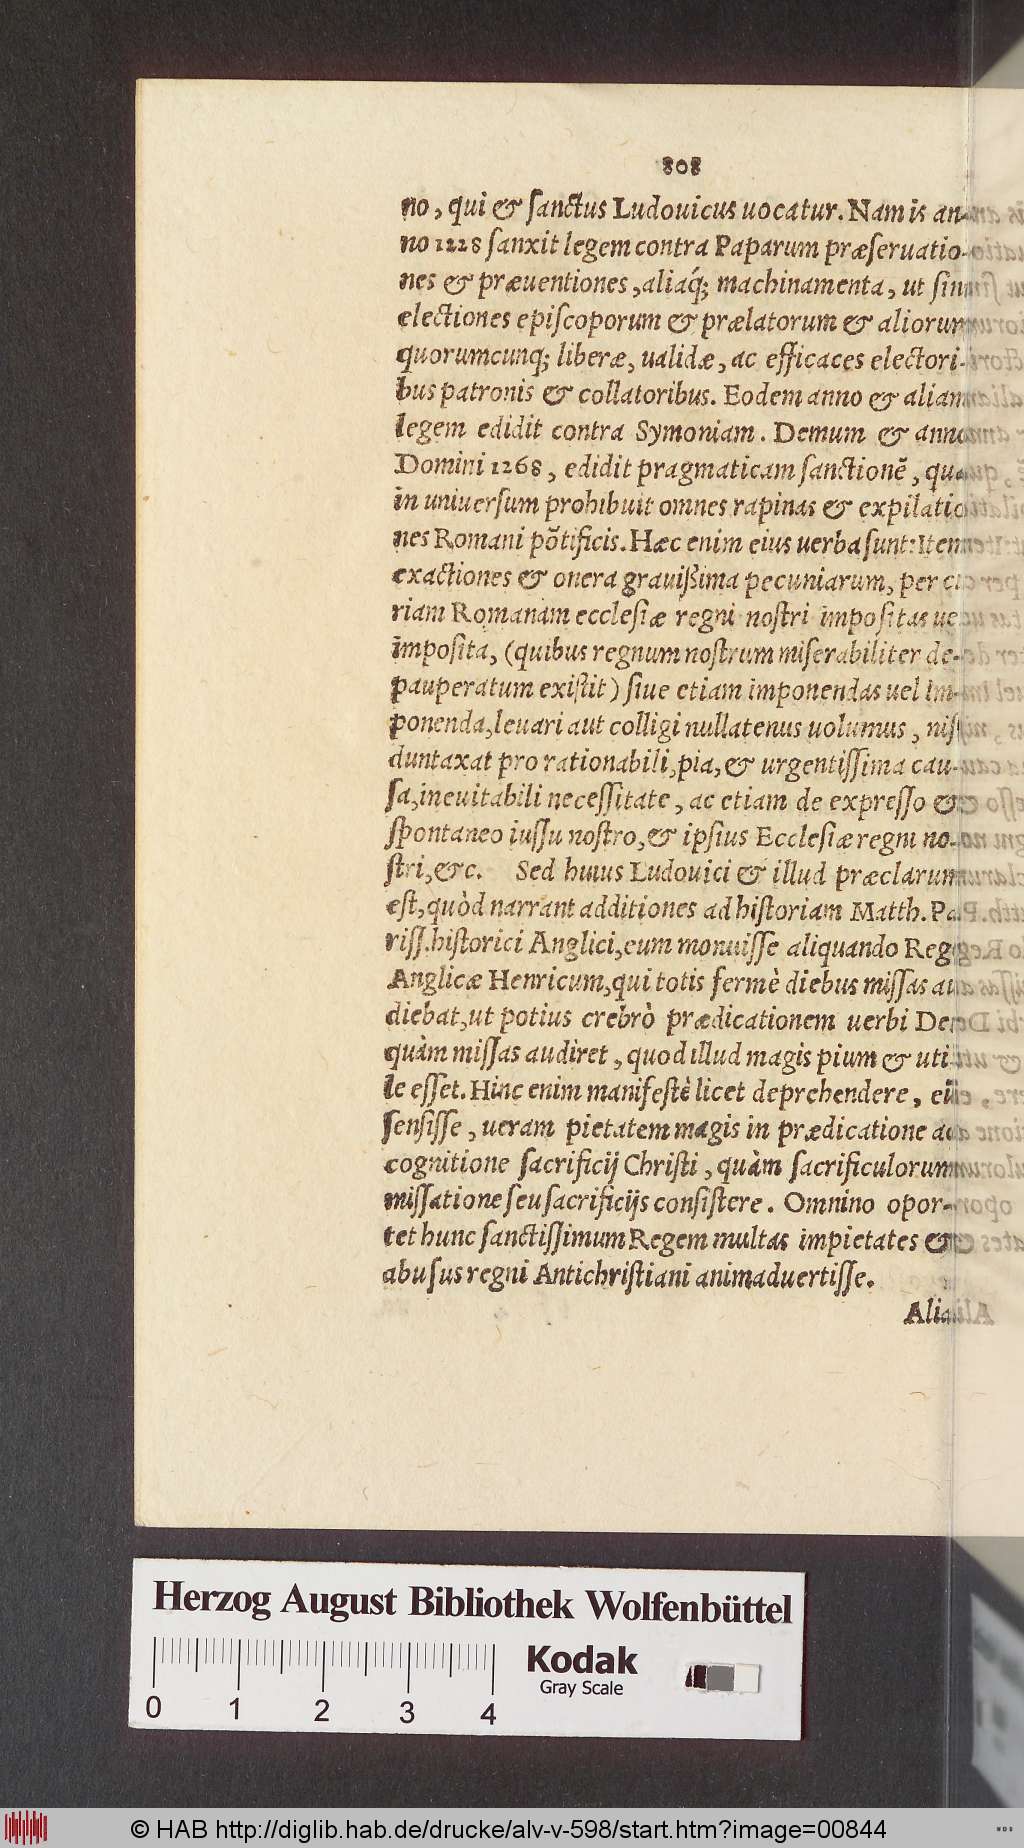 808
no, qui & ſanctus Ludouicus uocatur. Nam is an-
no 1228 ſanxit legem contra Paparum præſeruatio-
nes & præuentiones, aliaq́; machinamenta, ut ſint
electiones epiſcoporum & prælatorum & aliorum
quorumcunq; liberæ, ualidæ, ac efficaces electori-
bus patronis & collatoribus. Eodem anno & aliam
legem edidit contra Symoniam. Demum & anno
Domini 1268, edidit pragmaticam ſanctionē, qua
in uniuerſum prohibuit omnes rapinas & expilatio
nes Romani põtificis. Hæc enim eius uerba ſunt: Item
exactiones & onera grauißima pecuniarum, per cu
riam Romanam eccleſiæ regni noſtri impoſitas uel
impoſita, (quibus regnum noſtrum miſerabiliter de-
pauperatum exiſtit) ſiue etiam imponendas uel im-
ponenda, leuari aut colligi nullatenus uolumus, niſi
duntaxat pro rationabili, pia, & urgentiſſima cau-
ſa, ineuitabili neceſſitate, ac etiam de expreſſo &
ſpontaneo iuſſu noſtro, & ipſius Eccleſiæ regni no-
ſtri, &c. Sed huius Ludouici & illud præclarum
eſt, quòd narrant additiones ad hiſtoriam Matth. Pa
riſſ. hiſtorici Anglici, eum monuiſſe aliquando Regē
Anglicæ Henricum, qui totis fermè diebus miſſas au
diebat, ut potius crebrò prædicationem uerbi Dei
quàm miſſas audiret, quod illud magis pium & uti
le eſſet. Hinc enim manifeſtè licet deprehendere, eū
ſenſiſſe, ueram pietatem magis in prædicatione ac
cognitione ſacrificij Chriſti, quàm ſacrificulorum
miſſatione ſeu ſacrificijs conſiſtere. Omnino opor-
tet hunc ſanctiſſimum Regem multas impietates &
abuſus regni Antichriſtiani animaduertiſſe.
Alia
Herzog August Bibliothek Wolfenbüttel
0 1 2 3 4
Kodak
Gray Scale
© HAB http://diglib.hab.de/drucke/alv-v-598/start.htm?image=00844